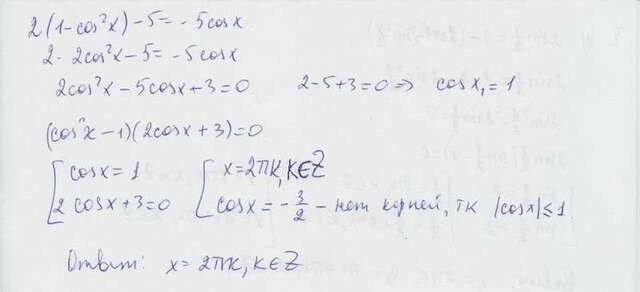 2(1-cos²x)-5=-5cosx
2-2cos²x-5=-5cosx
2cos²x-5cosx+3=0 2-5+3=0 => cosx₁=1
(cosx-1)(2cosx+3)=0
[cosx=1 [x=2πk, k∈Z
[2cosx+3=0 [cosx=-3/2 - нет корней, тк |cosx|≤1
Ответ: x=2πk, k∈Z